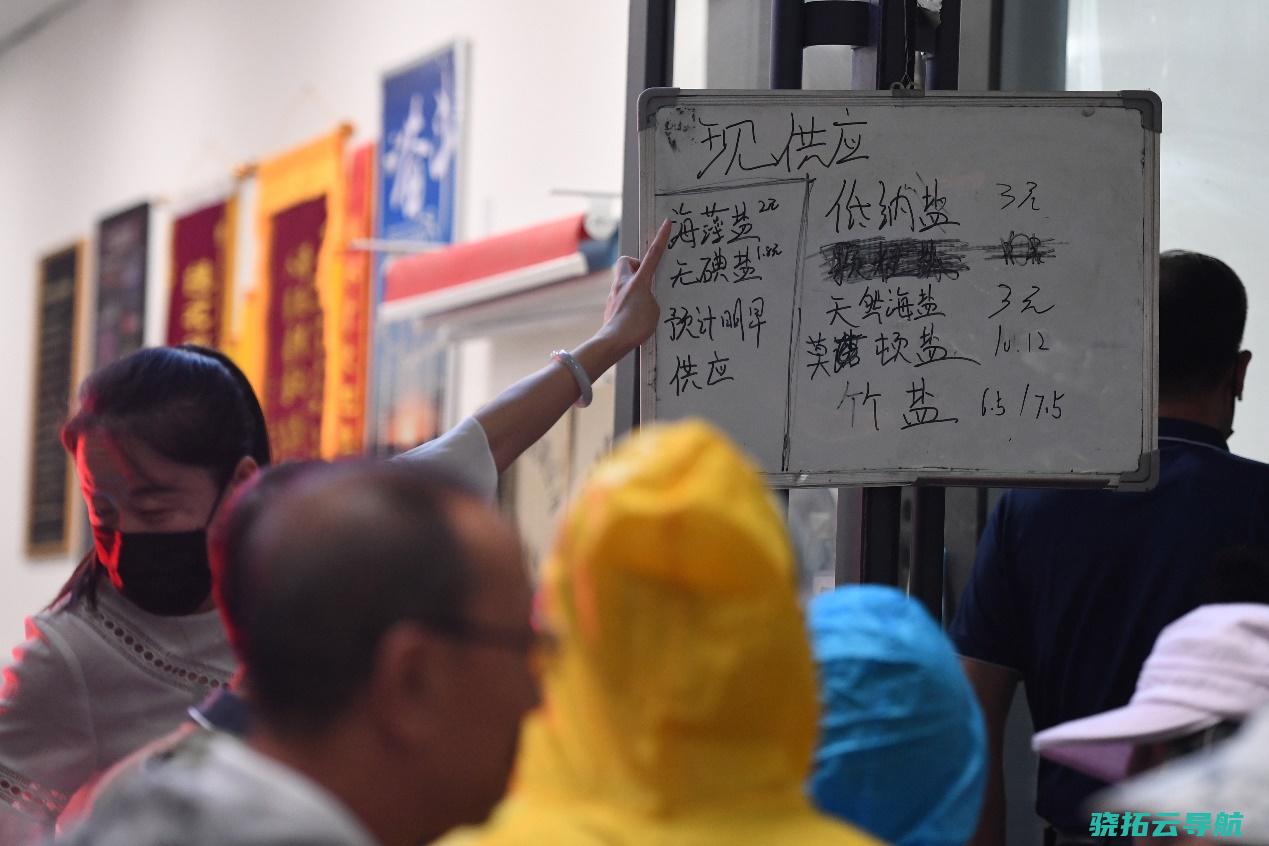 现供应
海藻盐 2元
无碘盐 1.8元
预计明早
供应
低纳盐 3元
天然海盐 3元
莫顿盐 10.12
竹盐 6.5/7.5
骁拓云导航